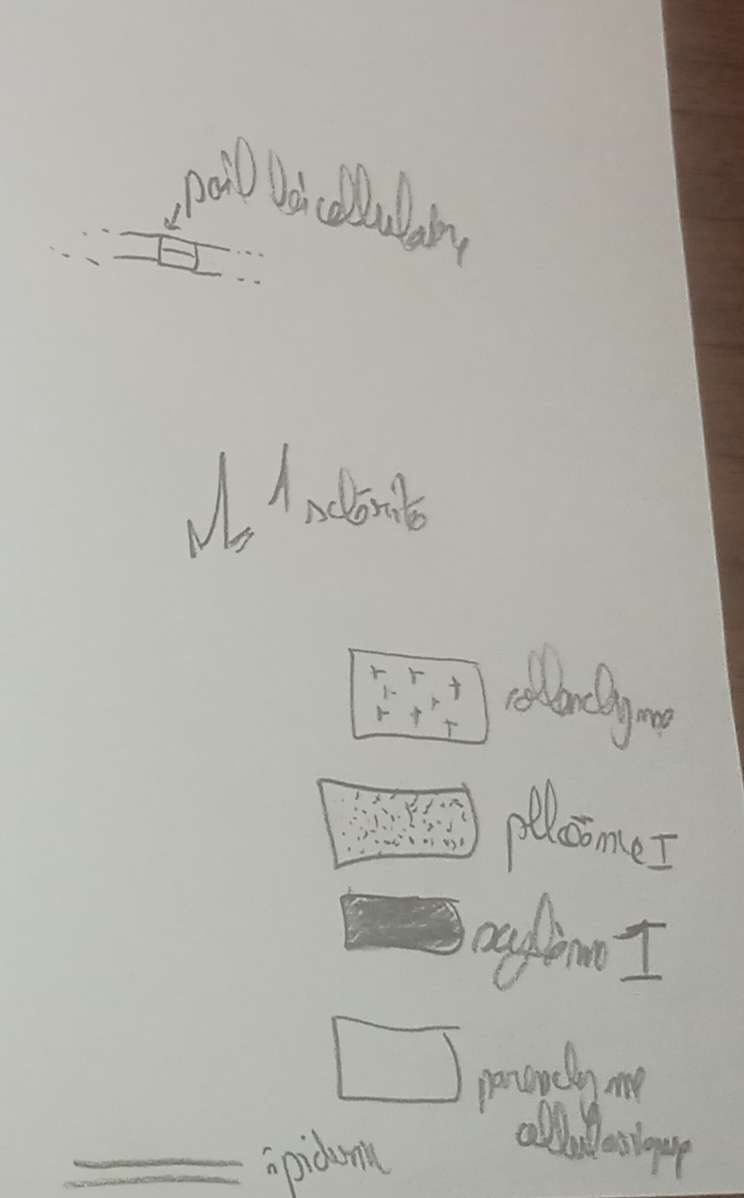 poil bicellulaire
1 sclérite
collenchyme
phloème I
xylème I
parenchyme
cellulosique
épiderme